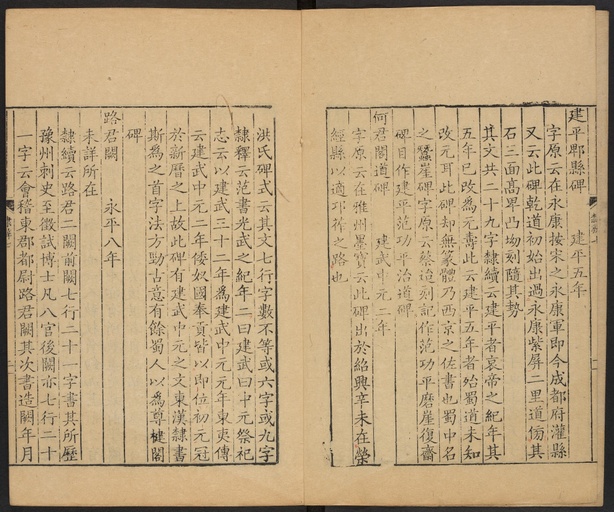 建平郫縣碑　建平五年
字原云在永康按宋之永康軍即今成都府灌縣
又云此碑乾道初始出過永康紫屏二里道傍其
石三面高卑凸坳刻隨其勢
其文共二十九字隸續云建平者哀帝之紀年其
五年已改為元壽此云建平五年者殆蜀道未知
改元耳此碑却無篆體乃西京之佐書也蜀中名
之蠶崖碑字原云蔡迨刻記作范功平磨崖復齋
碑目作建平范功平治道碑
何君閣道碑　建武中元二年
字原云在雅州墨寶云此碑出於紹興辛未在榮
經縣以適邛莋之路也
洪氏碑式云其文七行字數不等或六字或九字
隸釋云范書光武之紀年二曰建武曰中元祭祀
志云以建武三十二年為建武中元元年東夷傳
云建武中元二年倭奴國奉貢皆以即位初元冠
於新曆之上故此碑有建武中元之文東漢隸書
斯為之首字法方勁古意有餘蜀人以為尊楗閣
碑
路君闕　永平八年
未詳所在
隸續云路君二闕前闕七行二十一字書其所歷
豫州刺史至徵試博士凡八官後闕亦七行二十
一字云會稽東郡都尉路君闕其次書造闕年月